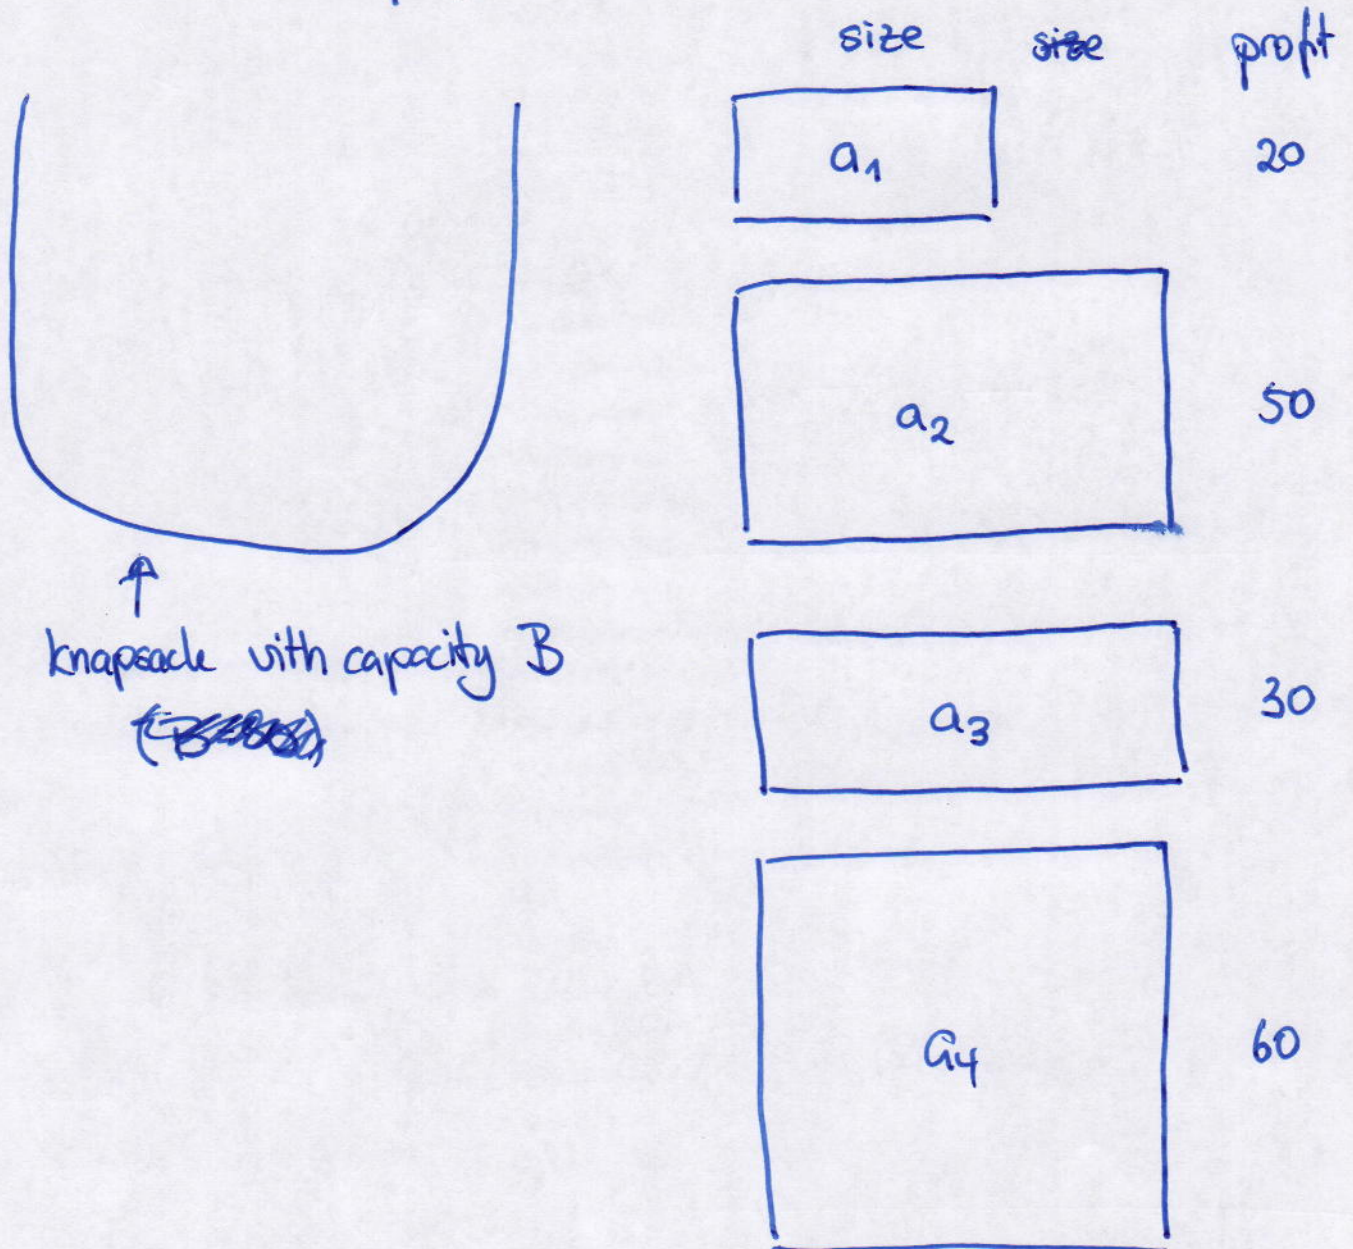 size size profit
a1 20
a2 50
knapsack with capacity B
a3 30
a4 60